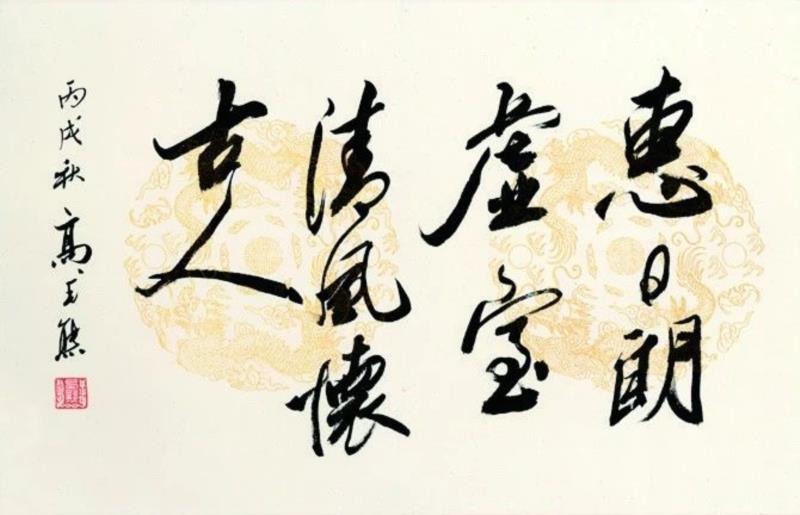 惠日朗
虚室
清風懷
古人
丙戌秋 高